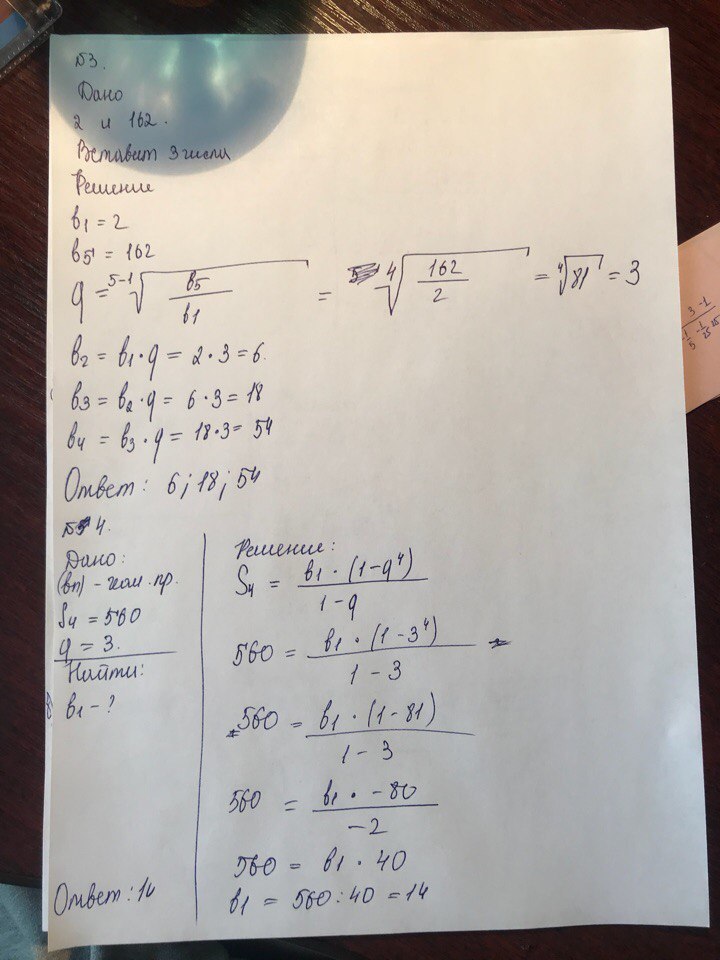 №3.
Дано
2 и 162.
Вставит 3 числа
Решение
b1 = 2
b5 = 162
q = ⁵⁻¹√(b5/b1) = ⁴√(162/2) = ⁴√81 = 3
b2 = b1 · q = 2 · 3 = 6.
b3 = b2 · q = 6 · 3 = 18
b4 = b3 · q = 18 · 3 = 54
Ответ: 6; 18; 54
№4.
Дано:
(bn) - геом. пр.
S4 = 560
q = 3.
Найти:
b1 - ?
Ответ: 14
Решение:
S4 = b1 · (1 - q⁴) / 1 - q
560 = b1 · (1 - 3⁴) / 1 - 3
560 = b1 · (1 - 81) / 1 - 3
560 = b1 · -80 / -2
560 = b1 · 40
b1 = 560 : 40 = 14